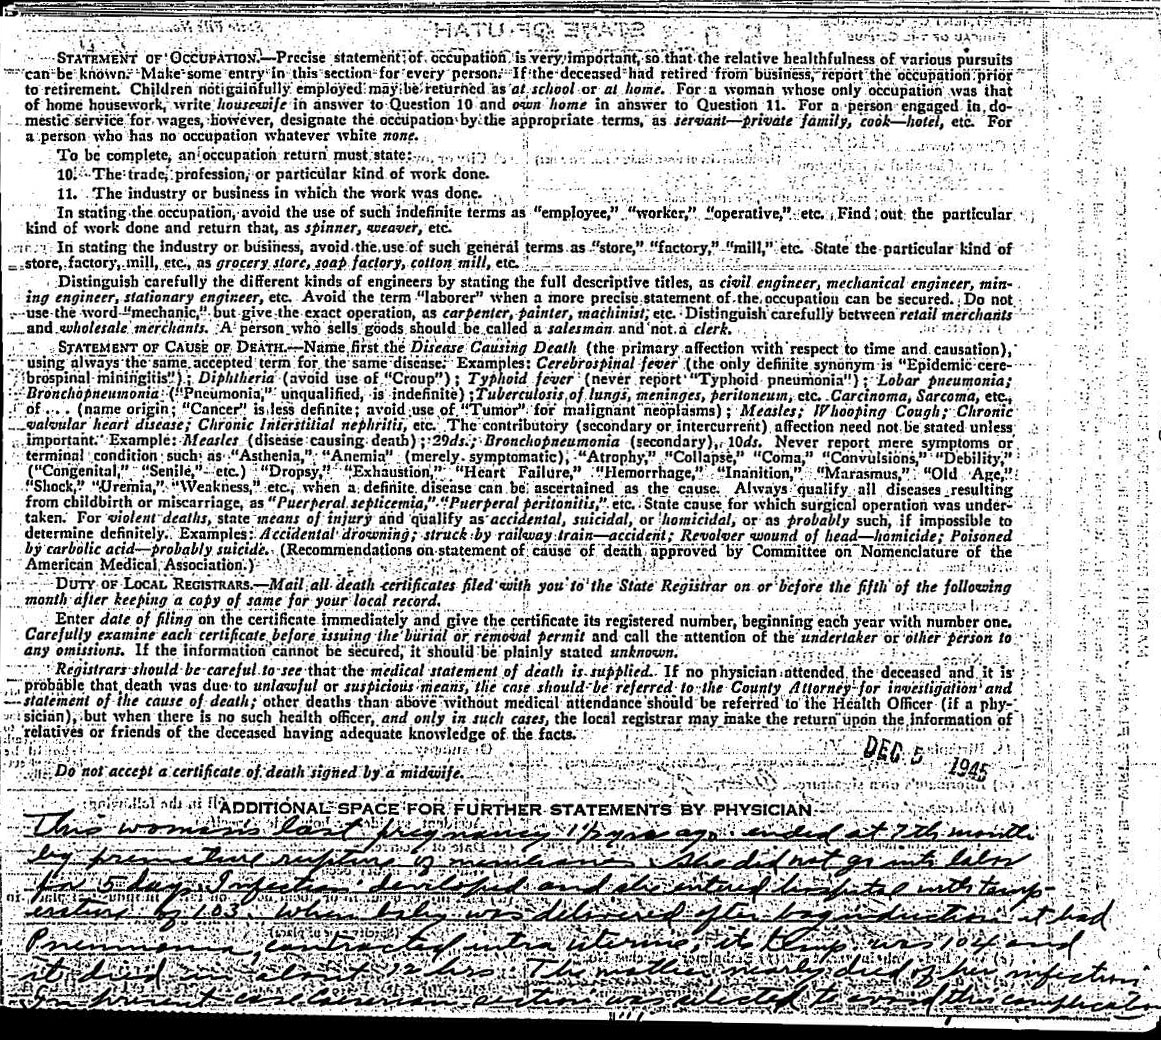 STATE OF UTAH
STATEMENT OF OCCUPATION.—Precise statement of occupation is very important, so that the relative healthfulness of various pursuits
can be known. Make some entry in this section for every person. If the deceased had retired from business, report the occupation prior
to retirement. Children not gainfully employed may be returned as at school or at home. For a woman whose only occupation was that
of home housework, write housewife in answer to Question 10 and own home in answer to Question 11. For a person engaged in do-
mestic service for wages, however, designate the occupation by the appropriate terms, as servant—private family, cook—hotel, etc. For
a person who has no occupation whatever white none.
To be complete, an occupation return must state:
10. The trade, profession, or particular kind of work done.
11. The industry or business in which the work was done.
In stating the occupation, avoid the use of such indefinite terms as "employee," "worker," "operative," etc. Find out the particular
kind of work done and return that, as spinner, weaver, etc.
In stating the industry or business, avoid the use of such general terms as "store," "factory," "mill," etc. State the particular kind of
store, factory, mill, etc., as grocery store, soap factory, cotton mill, etc.
Distinguish carefully the different kinds of engineers by stating the full descriptive titles, as civil engineer, mechanical engineer, min-
ing engineer, stationary engineer, etc. Avoid the term "laborer" when a more precise statement of the occupation can be secured. Do not
use the word "mechanic," but give the exact operation, as carpenter, painter, machinist, etc. Distinguish carefully between retail merchants
and wholesale merchants. A person who sells goods should be called a salesman and not a clerk.
STATEMENT OF CAUSE OF DEATH.—Name first the Disease Causing Death (the primary affection with respect to time and causation),
using always the same accepted term for the same disease. Examples: Cerebrospinal fever (the only definite synonym is "Epidemic cere-
brospinal miningitis"); Diphtheria (avoid use of "Croup"); Typhoid fever (never report "Typhoid pneumonia"); Lobar pneumonia;
Bronchopneumonia ("Pneumonia," unqualified, is indefinite); Tuberculosis of lungs, meninges, peritoneum, etc. Carcinoma, Sarcoma, etc.,
of .... (name origin; "Cancer" is less definite; avoid use of "Tumor" for malignant neoplasms); Measles; Whooping Cough; Chronic
valvular heart disease; Chronic Interstitial nephritis, etc. The contributory (secondary or intercurrent) affection need not be stated unless
important. Example: Measles (disease causing death); 29ds.; Bronchopneumonia (secondary), 10ds. Never report mere symptoms or
terminal condition such as "Asthenia," "Anemia" (merely symptomatic), "Atrophy," "Collapse," "Coma," "Convulsions," "Debility,"
("Congenital," "Senile," etc.) "Dropsy," "Exhaustion," "Heart Failure," "Hemorrhage," "Inanition," "Marasmus," "Old Age,"
"Shock," "Uremia," "Weakness," etc., when a definite disease can be ascertained as the cause. Always qualify all diseases resulting
from childbirth or miscarriage, as "Puerperal septicemia," "Puerperal peritonitis," etc. State cause for which surgical operation was under-
taken. For violent deaths, state means of injury and qualify as accidental, suicidal, or homicidal, or as probably such, if impossible to
determine definitely. Examples: Accidental drowning; struck by railway train—accident; Revolver wound of head—homicide; Poisoned
by carbolic acid—probably suicide. (Recommendations on statement of cause of death approved by Committee on Nomenclature of the
American Medical Association.)
DUTY OF LOCAL REGISTRARS.—Mail all death certificates filed with you to the State Registrar on or before the fifth of the following
month after keeping a copy of same for your local record.
Enter date of filing on the certificate immediately and give the certificate its registered number, beginning each year with number one.
Carefully examine each certificate before issuing the burial or removal permit and call the attention of the undertaker or other person to
any omissions. If the information cannot be secured, it should be plainly stated unknown.
Registrars should be careful to see that the medical statement of death is supplied. If no physician attended the deceased and it is
probable that death was due to unlawful or suspicious means, the case should be referred to the County Attorney for investigation and
statement of the cause of death; other deaths than above without medical attendance should be referred to the Health Officer (if a phy-
sician), but when there is no such health officer, and only in such cases, the local registrar may make the return upon the information of
relatives or friends of the deceased having adequate knowledge of the facts.
DEC 5 1945
Do not accept a certificate of death signed by a midwife.
ADDITIONAL SPACE FOR FURTHER STATEMENTS BY PHYSICIAN
This woman's last pregnancy 1½ yrs ago ended at 7th month
by premature rupture of membranes. She did not go into labor
for 5 days. Infection developed and she entered hospital with temp-
erature of 103. When baby was delivered after bag induction it had
Pneumonia, contracted intra uterine, its temp was 104 and
it died in about 12 hrs. The mother nearly died of her infection
In present case Caesarean section was elected to avoid this complication